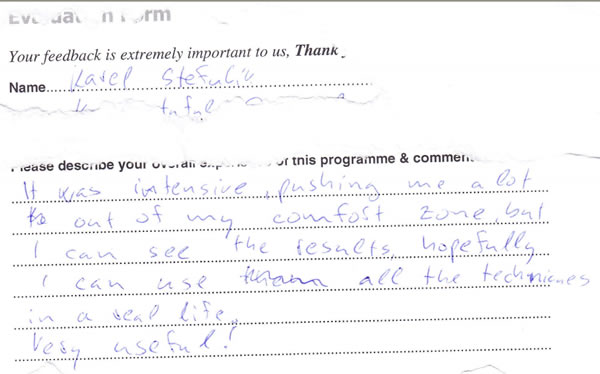 Your feedback is extremely important to us, Thank
Name Karel
Please describe your overall of this programme & comment
It was intensive, pushing me a lot
out of my comfort zone, but
I can see the results, hopefully
I can use all the techniques
in a real life.
Very useful!